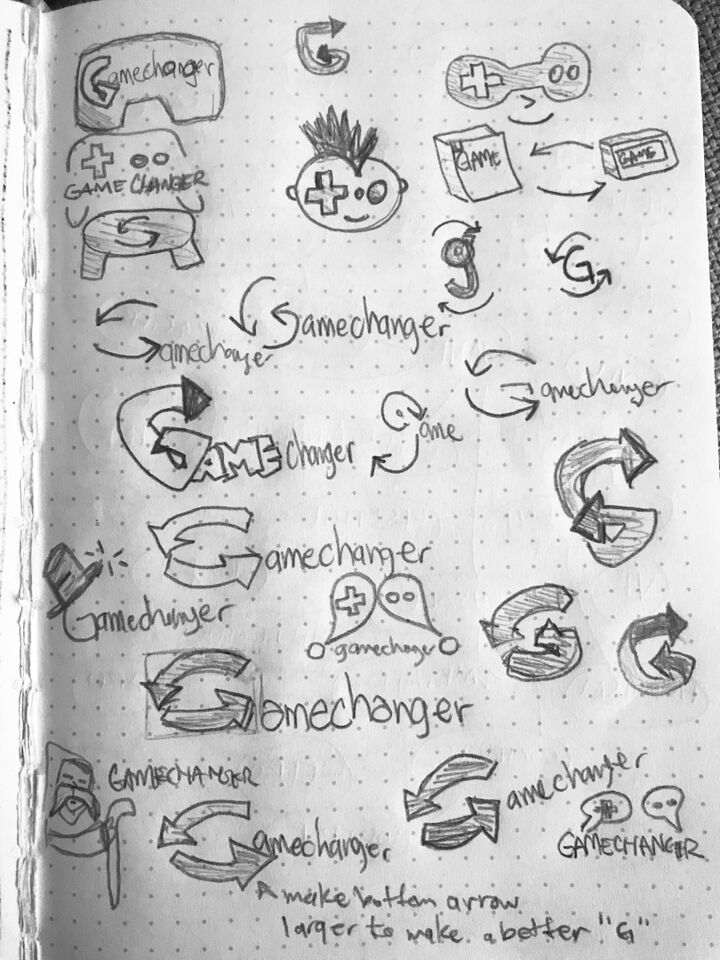 Gamechanger
G
GAMECHANGER
GAME
GAME
g
G
Gamechanger
Gamechanger
Gamechanger
GAMEchanger
Game
G
Gamechanger
Gamechanger
gamechanger
G
G
Gamechanger
GAMECHANGER
Gamechanger
Gamechanger
GAMECHANGER
make bottom arrow
larger to make a better "G"